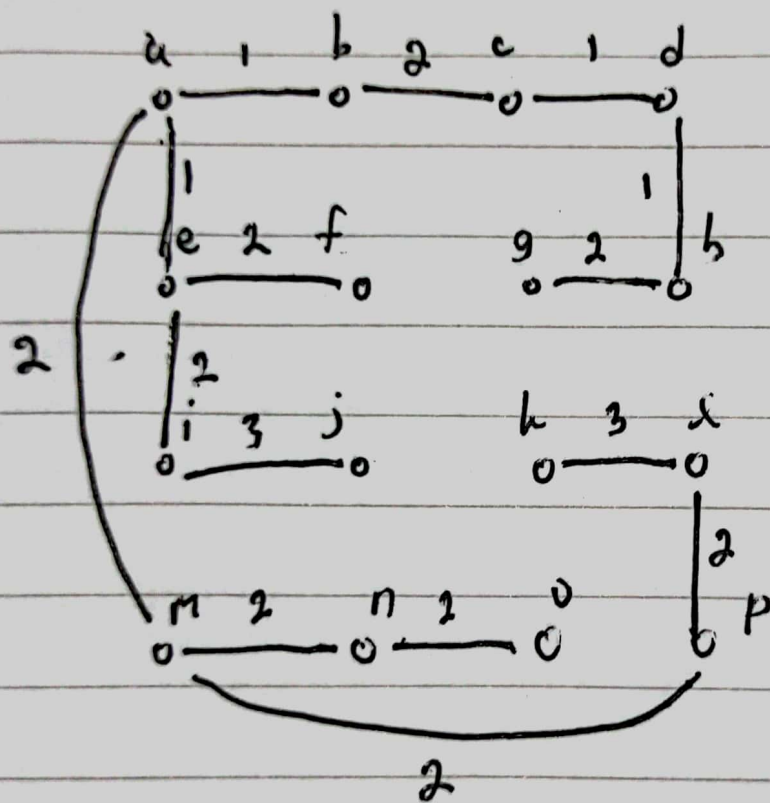 a 1 b 2 c 1 d
1 1
e 2 f g 2 h
2 2
i 3 j k 3 l
2
m 2 n 2 o p
2